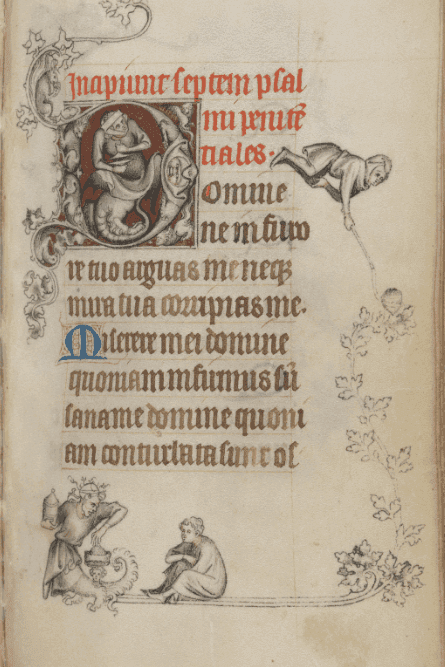 Incipiunt septem psal
mi penitē
tiales.
Domine
ne in furo
re tuo arguas me neqz
in ira tua corripias me.
Miserere mei domine
quoniam infirmus sū
sana me domine quoni
am conturbata sunt os